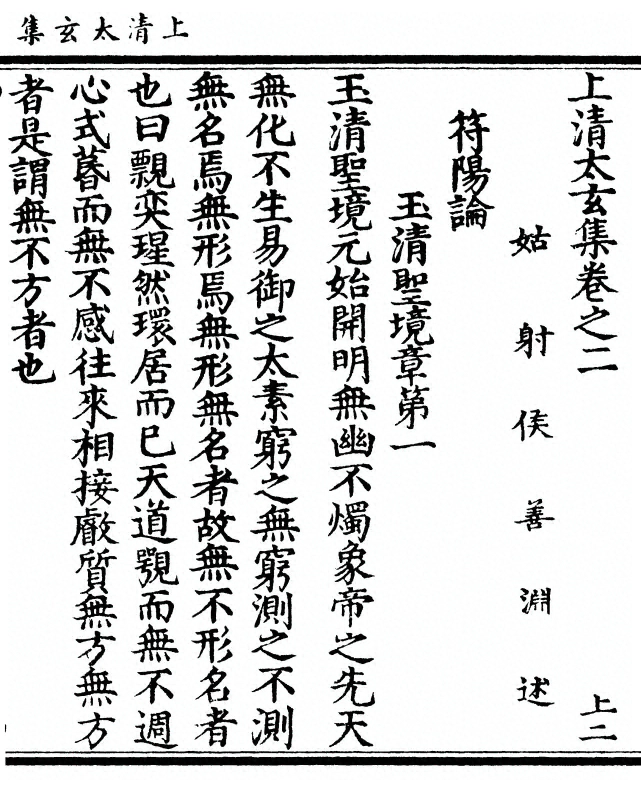 上清太玄集
上清太玄集卷之二
上二
姑射侯善淵述
符陽論
玉清聖境章第一
玉清聖境元始開明無幽不燭象帝之先天
無化不生易御之太素窮之無窮測之不測
無名焉無形焉無形無名者故無不形名者
也曰覵奕瑆然環居而已天道覨而無不週
心式暮而無不感往來相接厭質無方無方
者是謂無不方者也